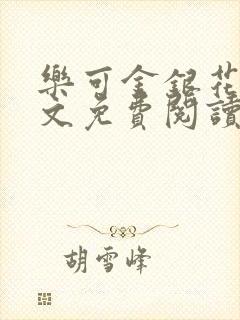 樂可金銀花
文免費閱讀
胡雪峰